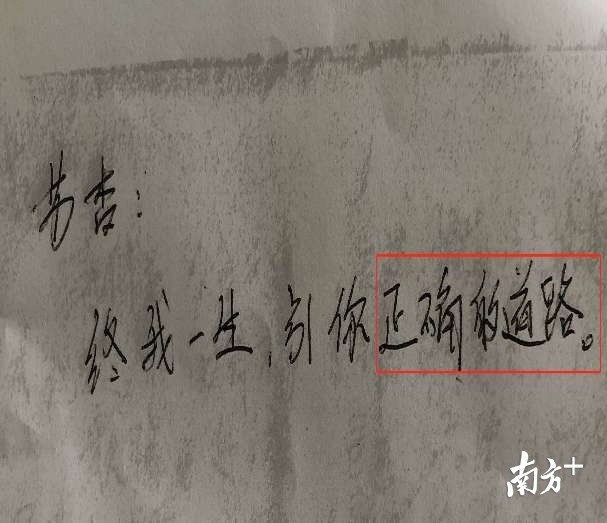 芳杏：
终我一生，引你正确的道路。
南方+